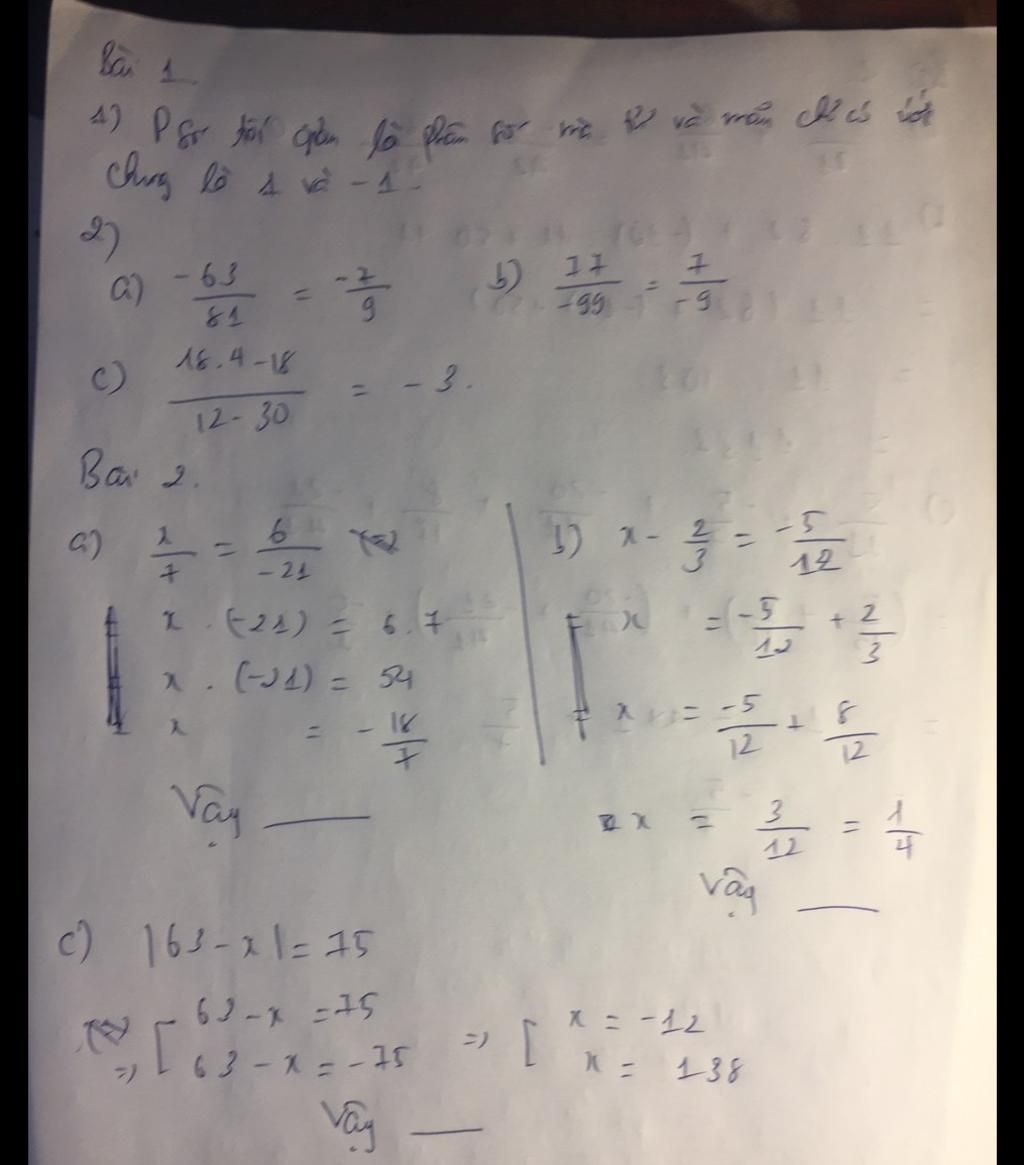 Bài 1
1) P số tối giản là phân số mà tử và mẫu chỉ có ước
chung là 1 và -1.
2)
a) -63/81 = -7/9 b) 77/-99 = 7/-9
c) 18.4-18/12-30 = -3.
Bài 2.
a) x/7 = 6/-21
x . (-21) = 6.7
x . (-21) = 54
x = -18/7
Vậy ___
b) x - 2/3 = -5/12
x = -5/12 + 2/3
x = -5/12 + 8/12
x = 3/12 = 1/4
Vậy ___
c) |63-x| = 75
=> [ 63-x = 75 => [ x = -12
63-x = -75 x = 138
Vậy ___